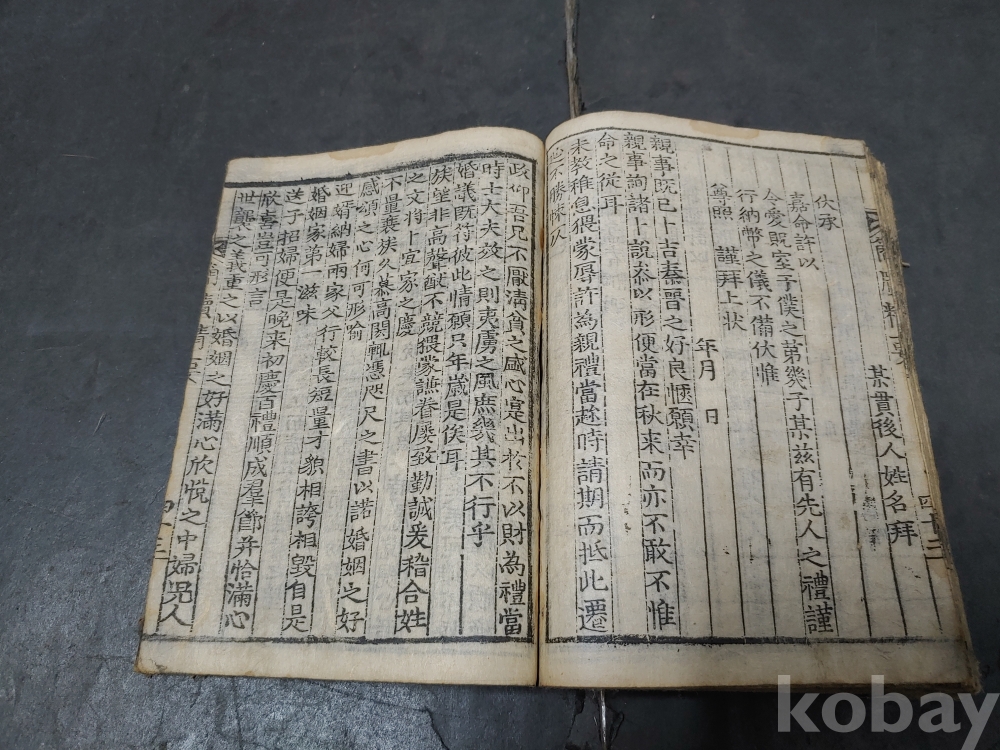 某貫後人姓名拜
伏承
嘉命許以
令愛貺室子僕之第幾子某茲有先人之禮謹
行納幣之儀不備伏惟
尊照　謹拜上狀
年月　日
親事既已卜吉秦晉之好良愜願幸
親事詢諸卜說忝以形便當在秋来而亦不敢不惟
命之從耳
来教稚息猥蒙辱許為親禮當趂時請期而抵此遷
政仰吾兄不厭清貧之盛心寔出於不以財為禮當
時士大夫效之則夷虜之風庶幾其不行乎
婚議既符彼此情願只年歲是俟耳
族望非高聲猷不競猥蒙謙眷屢致勤誠爰稽合姓
之文将卜宜家之慶
不量衰族久慕高閎輒憑咫尺之書以諾婚姻之好
感頌之心何可形喻
迎婿納婦兩家父行較長短量才貌相誇相毀自是
婚姻家第一滋味
送子招婦便是晚来初慶百禮順成羣節并恰滿心
欣喜豈可形言
世襲之義重之以婚姻之好滿心欣悅之中婦児人
四十三
kobay